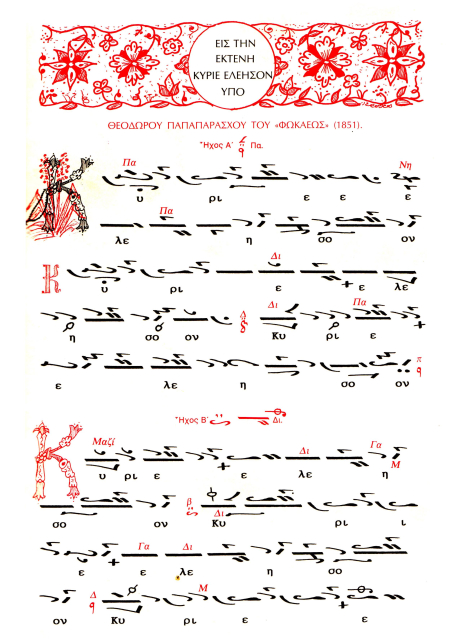 ΕΙΣ ΤΗΝ
ΕΚΤΕΝΗ
ΚΥΡΙΕ ΕΛΕΗΣΟΝ
ΥΠΟ
ΘΕΟΔΩΡΟΥ ΠΑΠΑΠΑΡΑΣΧΟΥ ΤΟΥ «ΦΩΚΑΕΩΣ» (1851).
Ἦχος Α΄ Πα.
Πα Νη
Κ υ ρι ε ε ε
Πα
λε η σο ον
Δι
Κ υ ρι ε ε λε
Δι Πα
η σο ον Κυ ρι ε
ε λε η σο ον
Ἦχος Β΄ Δι.
Μαζί Δι Γα
Κ υ ρι ε ε λε η Μ
β Δι
σο ον Κυ ρι ι
Γα Δι
ε ε λε η σο
Δ Μ
ον Κυ ρι ε ε